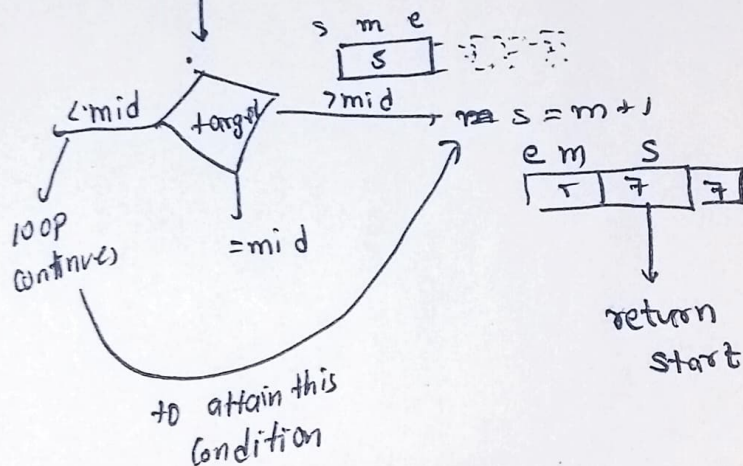 s m e
s
<mid
target
>mid
s = m+1
e m s
5 7 7
loop
continues
=mid
return
start
to attain this
condition